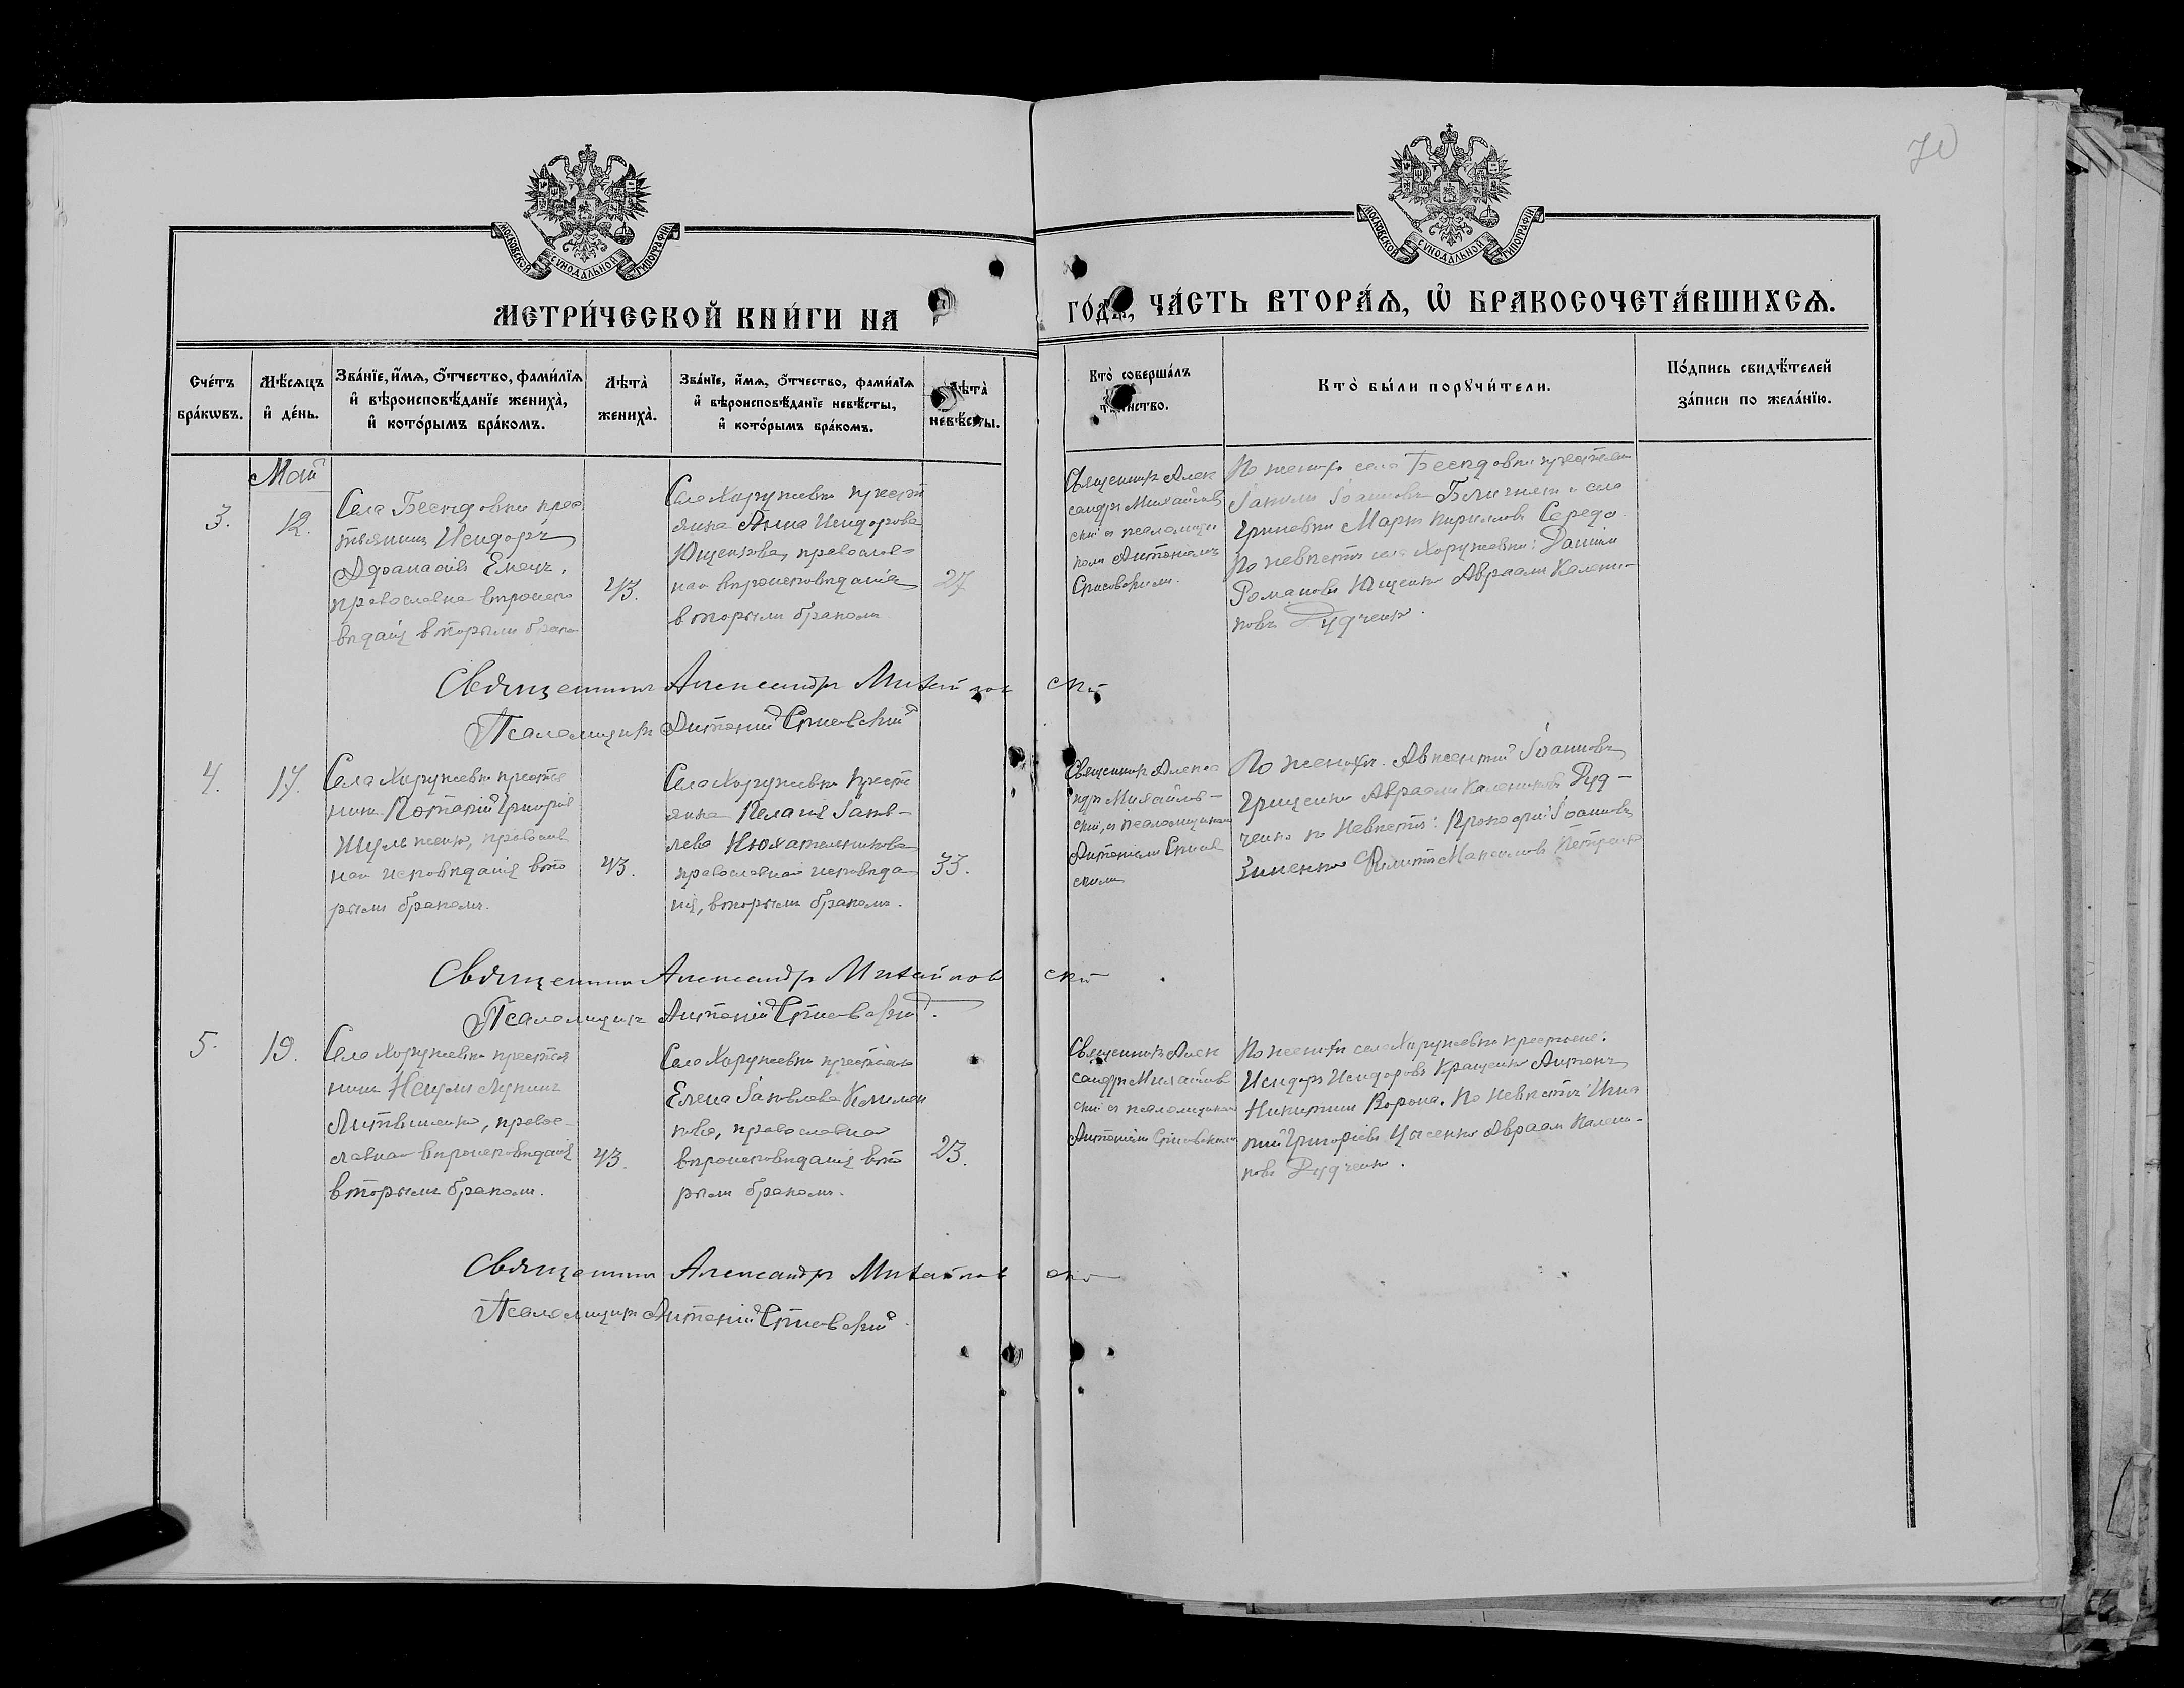 70
МОСКОВСКОЙ СѴНОДАЛЬНОЙ ТИПОГРАФІИ
МОСКОВСКОЙ СѴНОДАЛЬНОЙ ТИПОГРАФІИ
МЕТРИ́ЧЕСКОЙ КНИ́ГИ НА
ГО́ДЪ, ЧА́СТЬ ВТОРА́Ѧ, Ѽ БРАКОСОЧЕТА́ВШИХСѦ.
Сче́тъ
бра́кѡвъ.
Мѣ́сѧцъ
и҆ де́нь.
Зва́нїе, и҆́мѧ, ѻ҆́тчество, фами́лїѧ
и҆ вѣроисповѣ́данїе жениха̀,
и҆ кото́рымъ бра́комъ.
Лѣта̀
жениха̀.
Зва́нїе, и҆́мѧ, ѻ҆́тчество, фами́лїѧ
и҆ вѣроисповѣ́данїе невѣ́сты,
и҆ кото́рымъ бра́комъ.
Лѣта̀
невѣ́сты.
Кто̀ соверша́лъ
та́инство.
Кто̀ бы́ли порꙋчи́тели.
По́дпись свидѣ́телей
за́писи по жела́нїю.
Май
3.
12.
Села Бесѣдовки крес
тьянинъ Исидоръ
Афанасіевъ Емецъ,
православна вѣроиспо
вѣданія вторымъ брако
43.
Села Хоружевки крест
янка Анна Исидорова
Ющенкова, православ-
наго вѣроисповѣданія
вторымъ бракомъ
27
Священникъ Алек
сандръ Михайлов
скій съ псаломщи
комъ Антоніемъ
По женихѣ села Бесѣдовки крестьян
Іоанновъ села
Гриневки Маркъ Кирилловъ Середа.
По невѣстѣ села Хоружевки: Даніилъ
Романовъ Ющенко Авраамъ Калени-
ковъ Дудченко.
Священникъ Александръ Михайлов скій
Псаломщикъ Антоній
4.
17.
Села Хоружевки крестья
нинъ Потапій Григорьев
Шульженко, православ
наго исповѣданія вто
рымъ бракомъ.
43.
Села Хоружевки крест
янка Пелагія Іаков-
лева
православнаго исповѣда
нія, вторымъ бракомъ.
33.
Священникъ Алекса
ндръ Михайлов-
скій, съ псаломщикомъ
Антоніемъ
скимъ
По женихѣ: Авксентій Іоанновъ
Грищенко Авраамъ Калениковъ Дуд-
ченко по Невѣстѣ: Прокофій Іоанновъ
Зименко Филиппъ Максимовъ Петренко
Священникъ Александръ Михайлов скій
Псаломщикъ Антоній
5.
19.
Села Хоружевки крестья
нинъ Наумъ Лукинъ
Литвиненко, правос-
лавнаго вѣроисповѣданія
вторымъ бракомъ.
43.
Села Хоружевки крестьянка
Елена Іаковлева Климен
кова, православнаго
вѣроисповѣданія вто
рымъ бракомъ.
23.
Священникъ Алек
сандръ Михайлов
скій съ псаломщикомъ
Антоніемъ
По женихѣ села Хоружевки крестьяне:
Исидоръ Исидоровъ Кращенко Антонъ
Никитинъ Ворона. По Невѣстѣ: Игна
тій Григоріевъ Авраамъ Калени-
ковъ Дудченко.
Священникъ Александръ Михайлов скій
Псаломщикъ Антоній